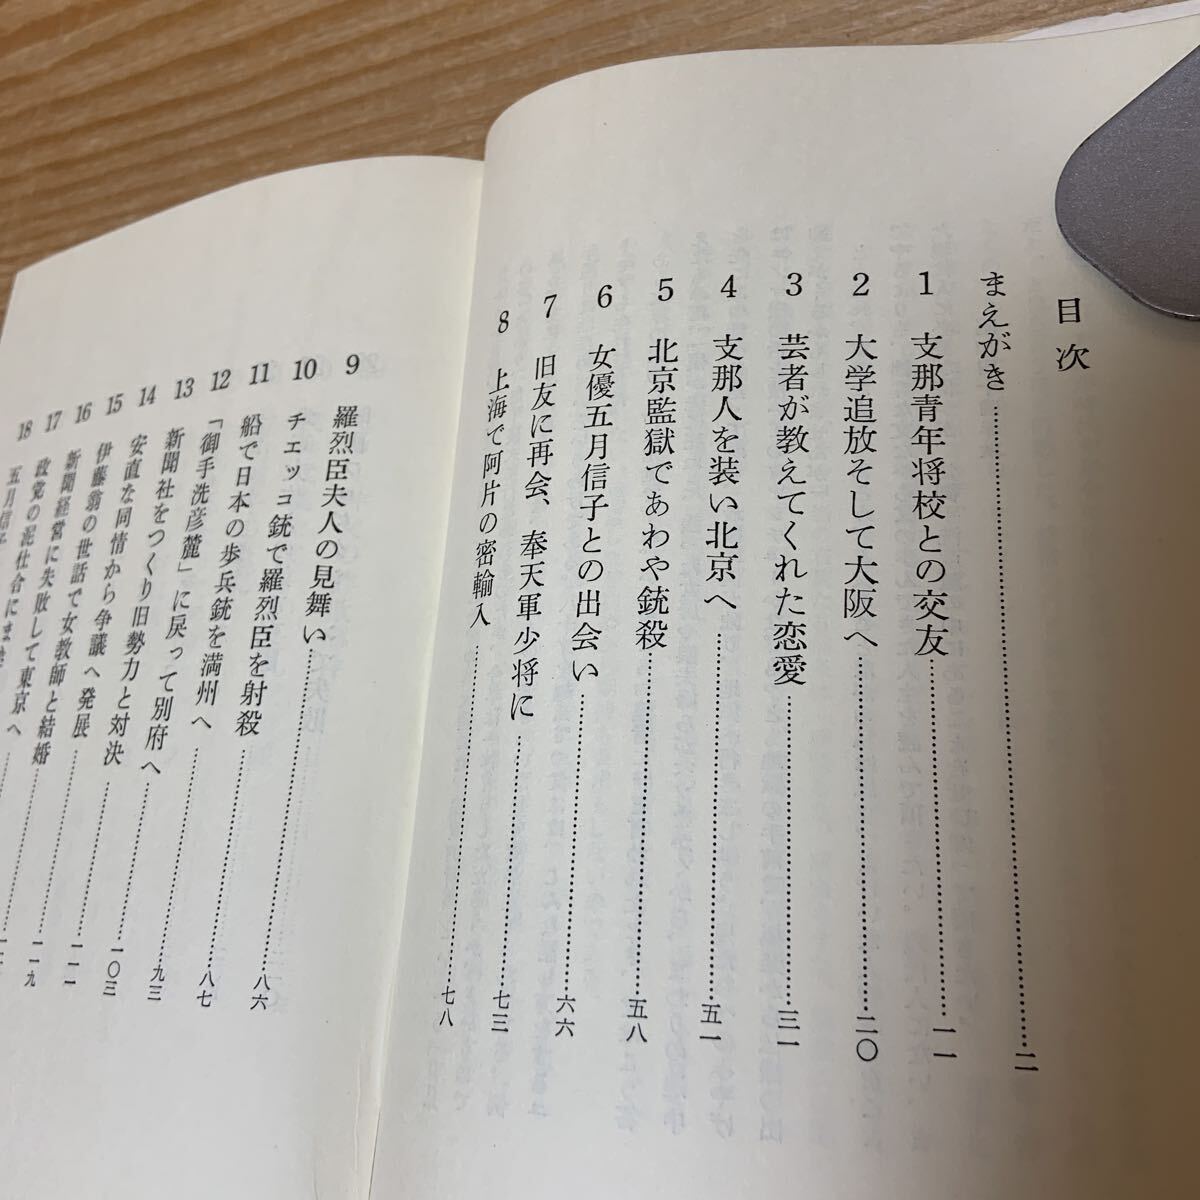 目次
まえがき……二
1 支那青年将校との交友……一一
2 大学追放そして大阪へ……二〇
3 芸者が教えてくれた恋愛……三一
4 支那人を装い北京へ……五一
5 北京監獄であわや銃殺……五八
6 女優五月信子との出会い……六六
7 旧友に再会、奉天軍少将に……七三
8 上海で阿片の密輸入……七八
9 羅烈臣夫人の見舞い……八六
10 チェッコ銃で羅烈臣を射殺……八七
11 船で日本の歩兵銃を満州へ……九三
12 「御手洗彦麓」に戻って別府へ……一〇三
13 新聞社をつくり旧勢力と対決……一一一
14 安直な同情から争議へ発展……一一九
15 伊藤翁の世話で女教師と結婚……
16 新聞経営に失敗して東京へ……
17 政党の泥仕合にま
18 五月信子